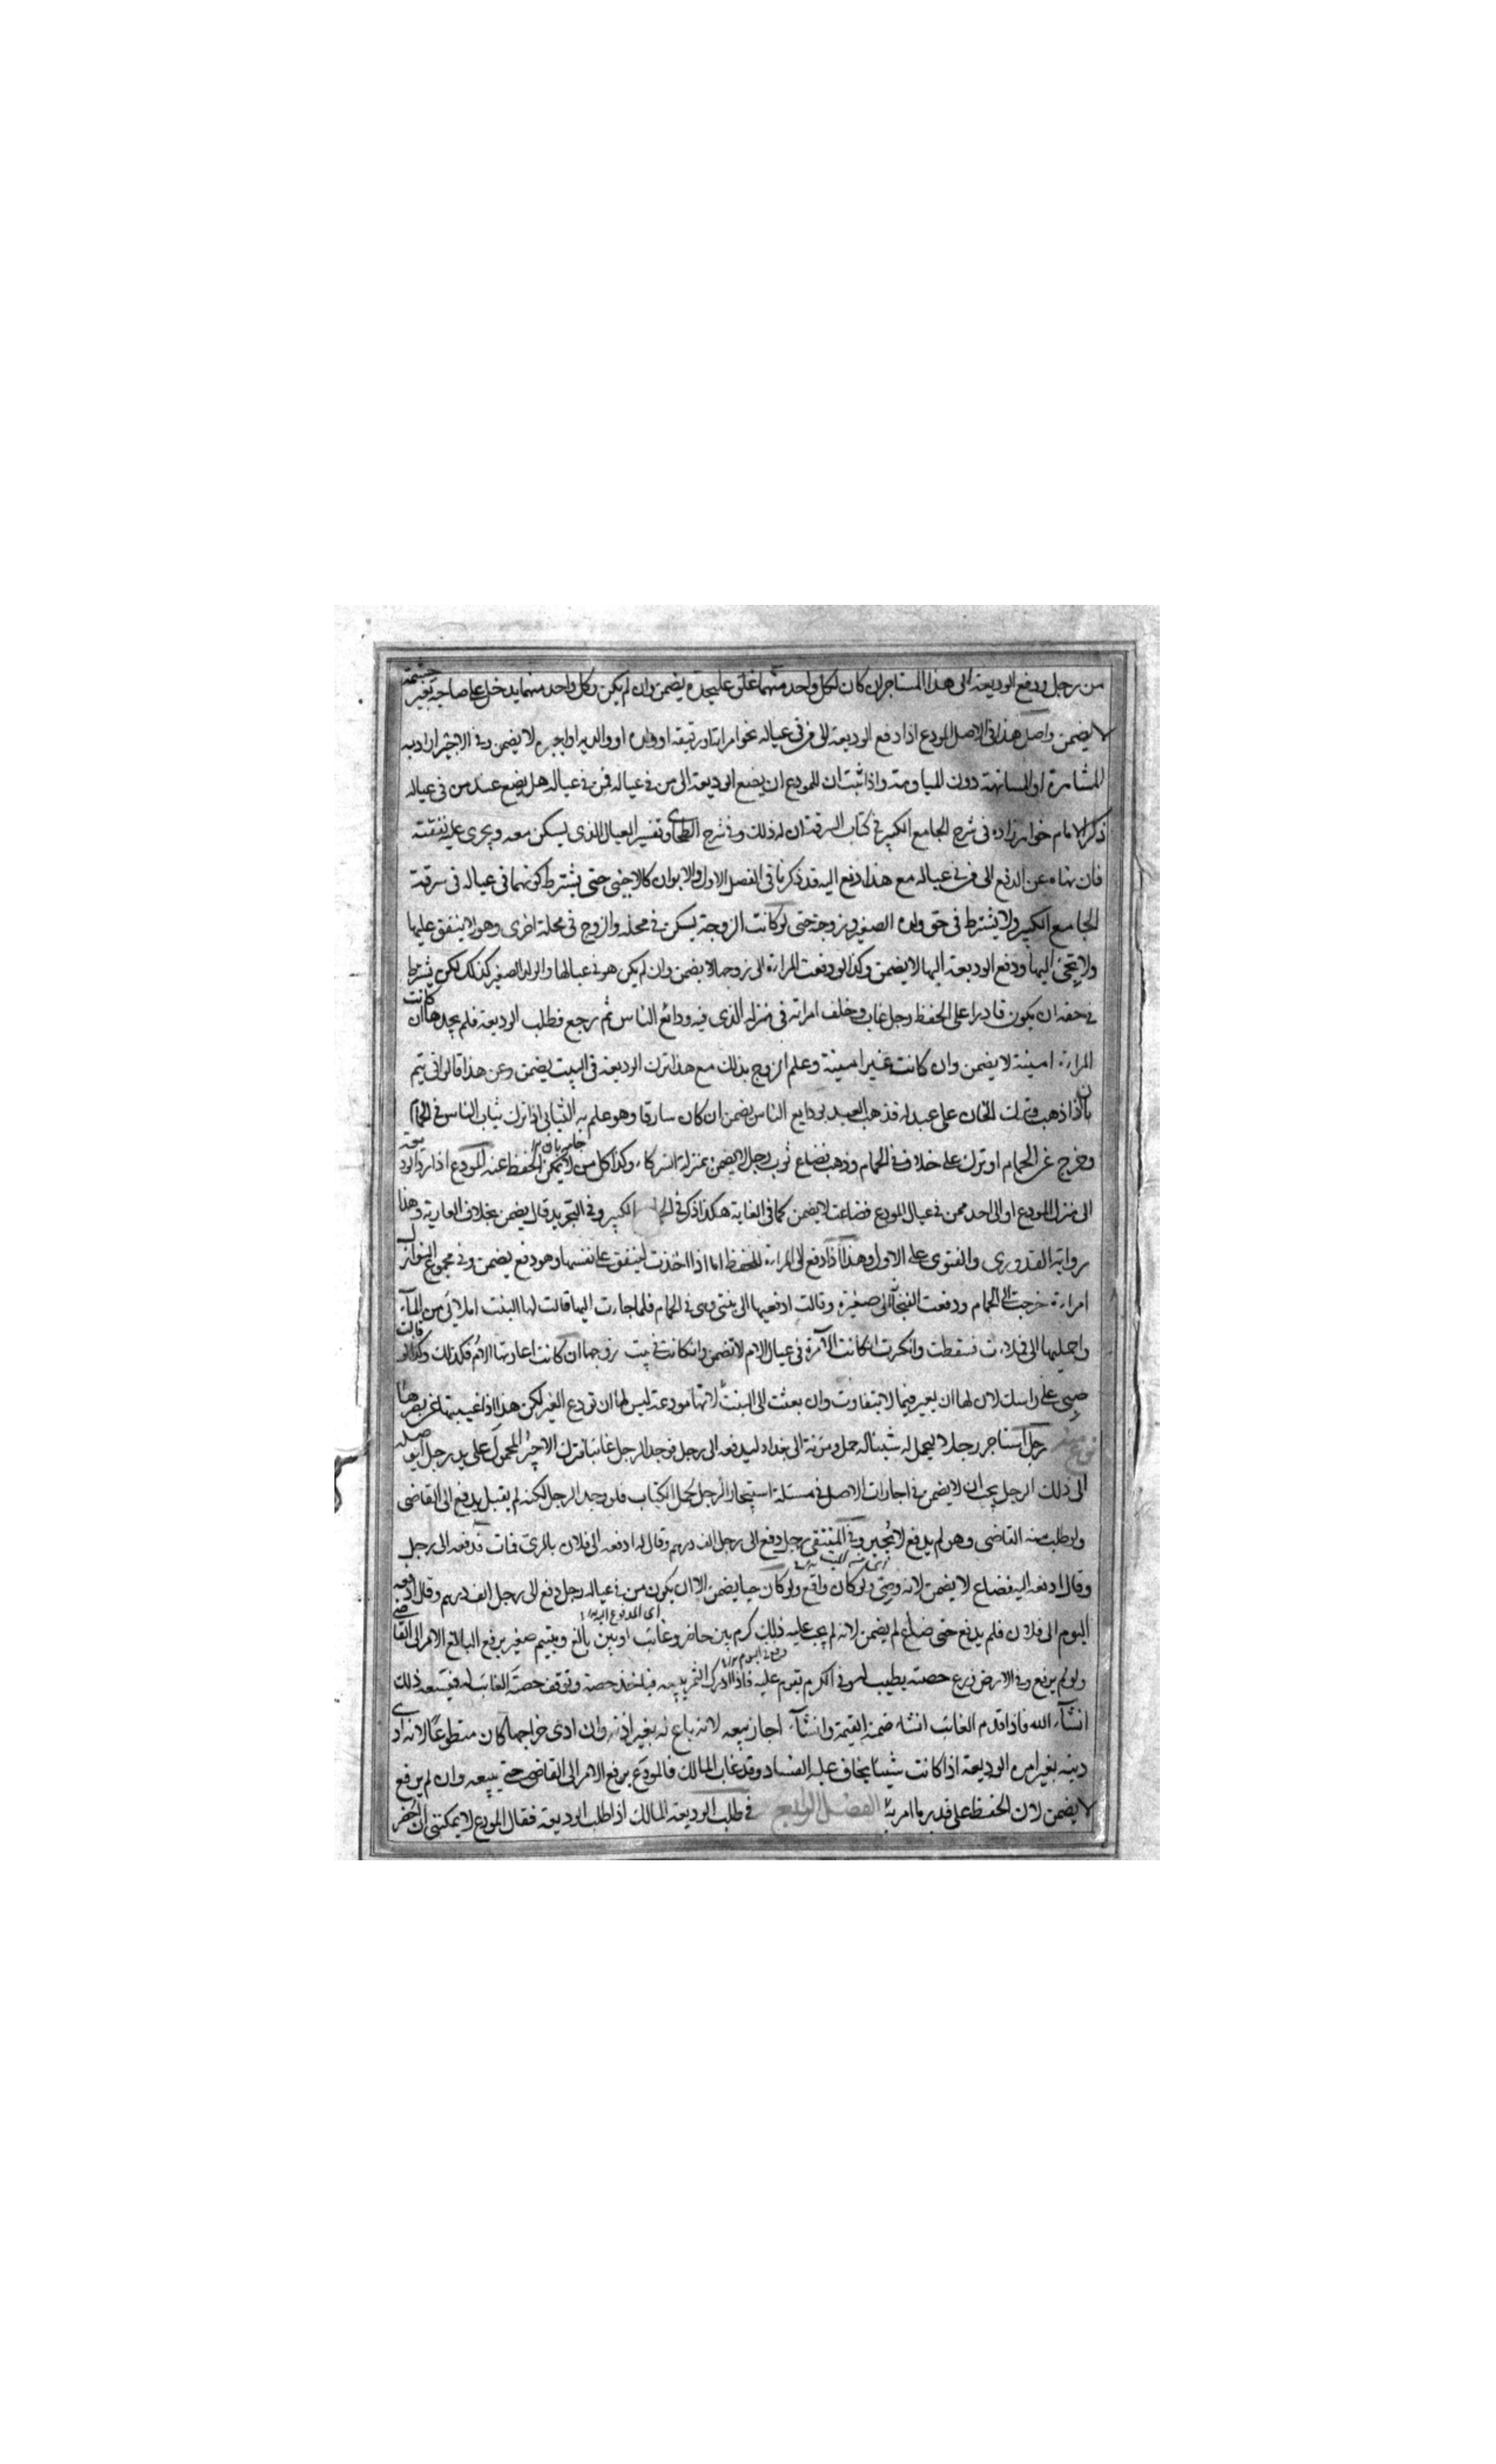 من رجل ودفع الوديعة الى هذا المستاجر ان كان لكل واحد منهما غلق عليحدة يضمن وان لم يكن وكل واحد منهما يدخل على صاحبه بغير حشمة
لا يضمن واصل هذا في الاصل المودع اذا دفع الوديعة الى من في عياله نحو امراته او رقيقه او ولده او والديه او اجيره لا يضمن وفي الاجير اراد به
المشاهرة او المسانهة دون المياومة واذا ثبت ان للمودع ان يضع الوديعة الى من في عياله فمن في عياله هل يضع عند من في عياله
ذكر الامام خواهر زاده في شرح الجامع الكبير في كتاب السرقة ان له ذلك وفي شرح الطحاوي وتفسير العيال الذي يسكن معه ويجرى عليه نفقته
فان نهاه عن الدفع الى من في عياله مع هذا دفع اليه قد ذكرنا في الفصل الاول والابوان كالاجنبي حتى يشترط كونهما في عياله في سرقة
الجامع الكبير ولا يشترط في حق ولده الصغير وزوجة حتى لو كانت الزوجة يسكن في محلة والزوج في محلة اخرى وهو لا ينفق عليها
ولا يجئ اليها ودفع الوديعة اليها لا يضمن وكذا لو دفعت المراة الى زوجها لا يضمن وان لم يكن هو في عيالها والولد الصغير كذلك لكن يشترط
في حقه ان يكون قادرا على الحفظ رجل غاب وخلف امراته في منزله الذي فيه ودائع الناس ثم رجع فطلب الوديعة فلم يجدها ان كانت
المراة امينة لا يضمن وان كانت غير امينة وعلم الزوج بذلك مع هذا ترك الوديعة في البيت يضمن وعن هذا قالوا في يتم
بان اذا ذهب وترك الخان على عبد له فذهب العبد بودايع الناس يضمن ان كان سارقا وهو علم به الثيابي اذا ترك ثياب الناس في الحمام
وخرج عن الحمام او ترك على خلاف في الحمام وذهب فضاع ثوب رجل لا يضمن بمنزلة الشركاء وكذا كل من لا يمكن الحفظ عنه المودع اذا رد الوديعة
الى منزل المودع او الى احد ممن في عيال المودع فضاعت لا يضمن كما في الغاية هكذا ذكر في الجامع الكبير وفي التجريد قال يضمن بخلاف العارية وهذا
رواية القدوري والفتوى على الاول وهذا اذا دفع الى المراة للحفظ اما اذا اخذت لينفق على نفسها وهو دفع يضمن وفي مجموع النوازل
امراة خرجت الى الحمام ودفعت الفنجان الى صغيرة وقالت ادفعيها الى بنتي وهي في الحمام فلما جاءت اليها قالت لها البنت املائي من الماء
واحمليها الى فلاءت فسقطت وانكرت ان كانت الآمرة في عيال الام لا تضمن وان كانت في بيت زوجها ان كانت اعارتها الام فكذلك وكذا لو قالت
صبي على راسك لان لها ان يعير فيما لا يتفاوت وان بعثت الى البنت لانها مودعة ليس لها ان تودع الغير لكن هذا اذا غيبتها عن بصرها
رجل استاجر رجلا ليحمل له شيئا له حمل ومؤنة الى بغداد ليدفعه الى رجل فوجد الرجل غائبا فترك الاجير المحمول على يد رجل ليوصله
الى ذلك الرجل يجب ان لا يضمن في اجارات الاصل في مسئلة استيجار الرجل لحمل الكتاب فلو وجد الرجل لكنه لم يقبل يدفع الى القاضي
ولو طلب منه القاضي وهو لم يدفع لا يجبر وفي المنتقى رجل دفع الى رجل الف درهم وقال له ادفعه الى فلان بالري فمات فدفعه الى رجل
وقال ادفعه اليه فضاع لا يضمن لانه وصي ولو كان دافع ولو كان حيا يضمن الا ان يكون من في عياله رجل دفع الى رجل الف درهم وقال ادفعه
اى المدفوع اليه
اليوم الى فلان فلم يدفع حتى ضاع لم يضمن لانه لم يجب عليه ذلك كرم بين حاضر وغائب او بين بالغ ويتيم صغير يرفع البالغ الامر الى القاضي
ولو لم يرفع وفي الارض زرع حصته يطيب له وفي الكرم يقوم عليه فاذا ادرك الثمر يبيعه فياخذ حصته وتوقف حصة الغائب له فيسعه ذلك
انشاء الله فاذا قدم الغائب انشاء ضمنه القيمة وانشاء اجاز بيعه لانه باع له بغير اذنه وان ادى خراجها كان متطوعا لانه ادى
دينه بغير امره الوديعة اذا كانت شيئا يخاف عليه الفساد وقد غاب المالك فالمودع يرفع الامر الى القاضي حتى يبيعه وان لم يرفع
لا يضمن لان الحفظ على قدر ما امر به الفصل الرابع في طلب الوديعة المالك اذا طلب الوديعة فقال المودع لا يمكنني ان احضر